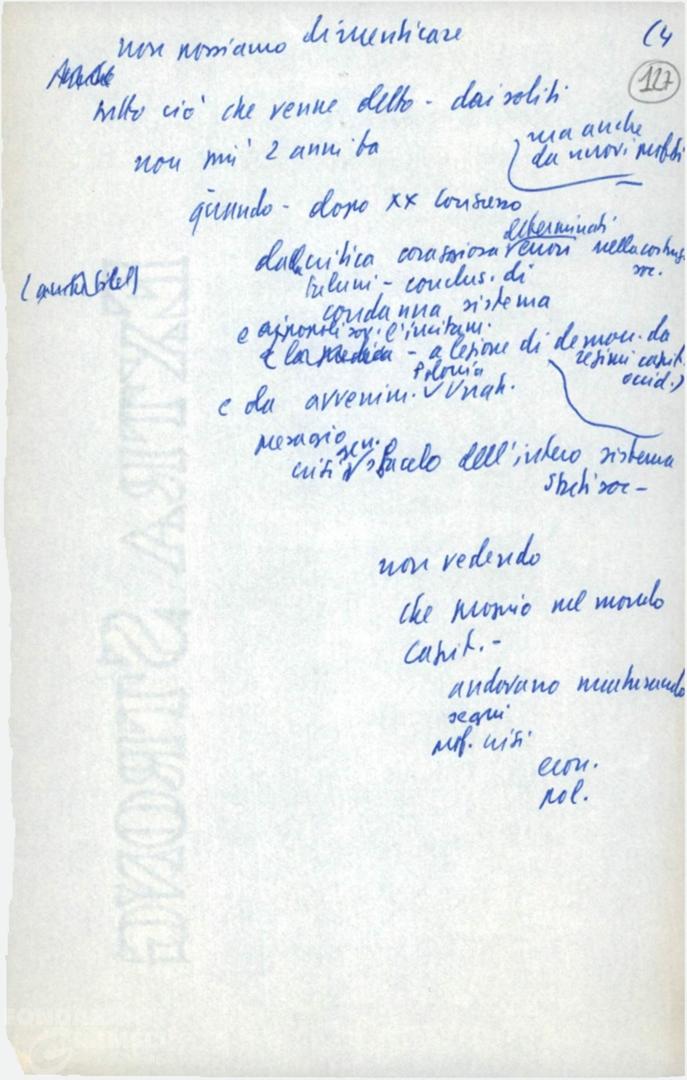 non possiamo dimenticare
(4
127
tutto ciò che venne detto - dai soliti
non più 2 anni fa
ma anche
da nuovi profeti
quando - dopo XX Congresso
determinati
dalla critica coraggiosa errori nella costruz.
soc.
taluni - conclus. di
condanna sistema
e
- a lezione di democ. da
regimi capit.
occid.)
Polonia
e da avvenim. V Ungh.
gen.
crisi V sfacelo dell'intero sistema
Stati soc -
non vedendo
che proprio nel mondo
capit. -
andavano
segni
prof. crisi
econ.
pol.
EXTRA STRONG